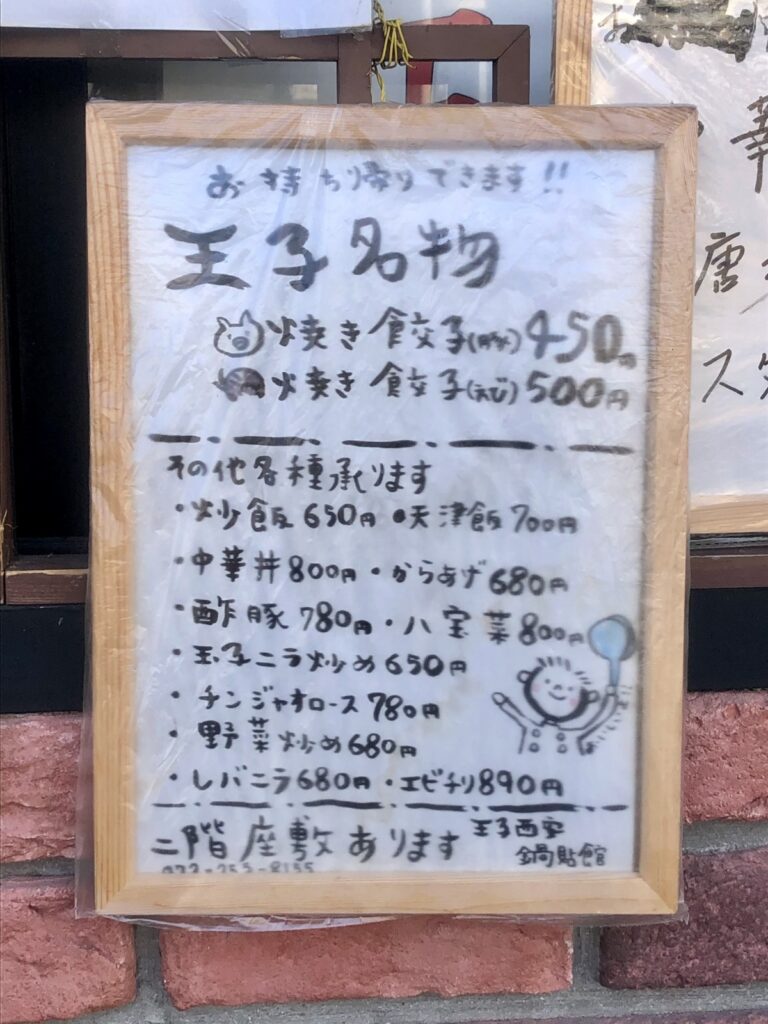 お持ち帰りできます!!
王子名物
焼き餃子(肉汁)450円
焼き餃子(えび)500円
その他各種承ります
・炒飯650円 ●天津飯700円
・中華丼800円・からあげ680円
・酢豚780円・八宝菜800円
・玉子ニラ炒め650円
・チンジャオロース780円
・野菜炒め680円
・レバニラ680円・エビチリ890円
二階座敷あります
王子西家
鍋貼館
華
唐
ス